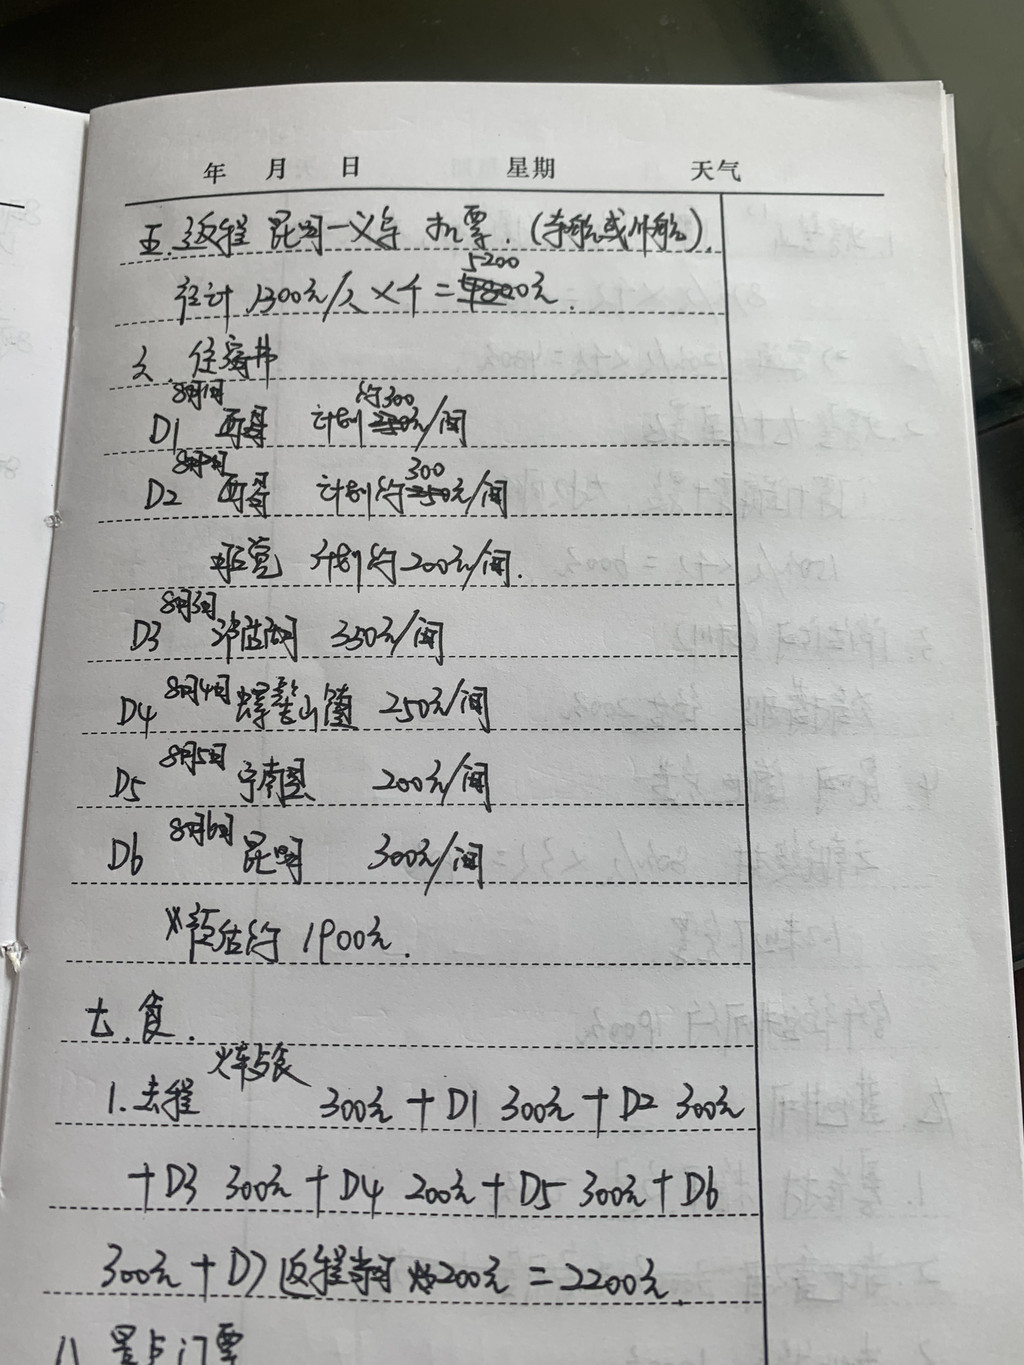 年 月 日 星期 天气
五.返程 昆明—义乌 机票.(东航或川航).
5200
往计 1300元/人×4=4800元.
六.住宿费
8月1日 约300
D1 西昌 计划250元/间
8月2日 300
D2 西昌 计划约250元/间
计划约200元/间.
8月3日
D3 泸沽湖 350元/间
8月4日
D4 螺髻山镇 250元/间
8月5日
D5 宁南县 200元/间
8月6日
D6 昆明 300元/间
预估约1900元.
七.食.
火车与食
1.去程 300元+D1 300元+D2 300元
+D3 300元+D4 200元+D5 300元+D6
300元+D7返程 200元=2200元.
八 景点门票